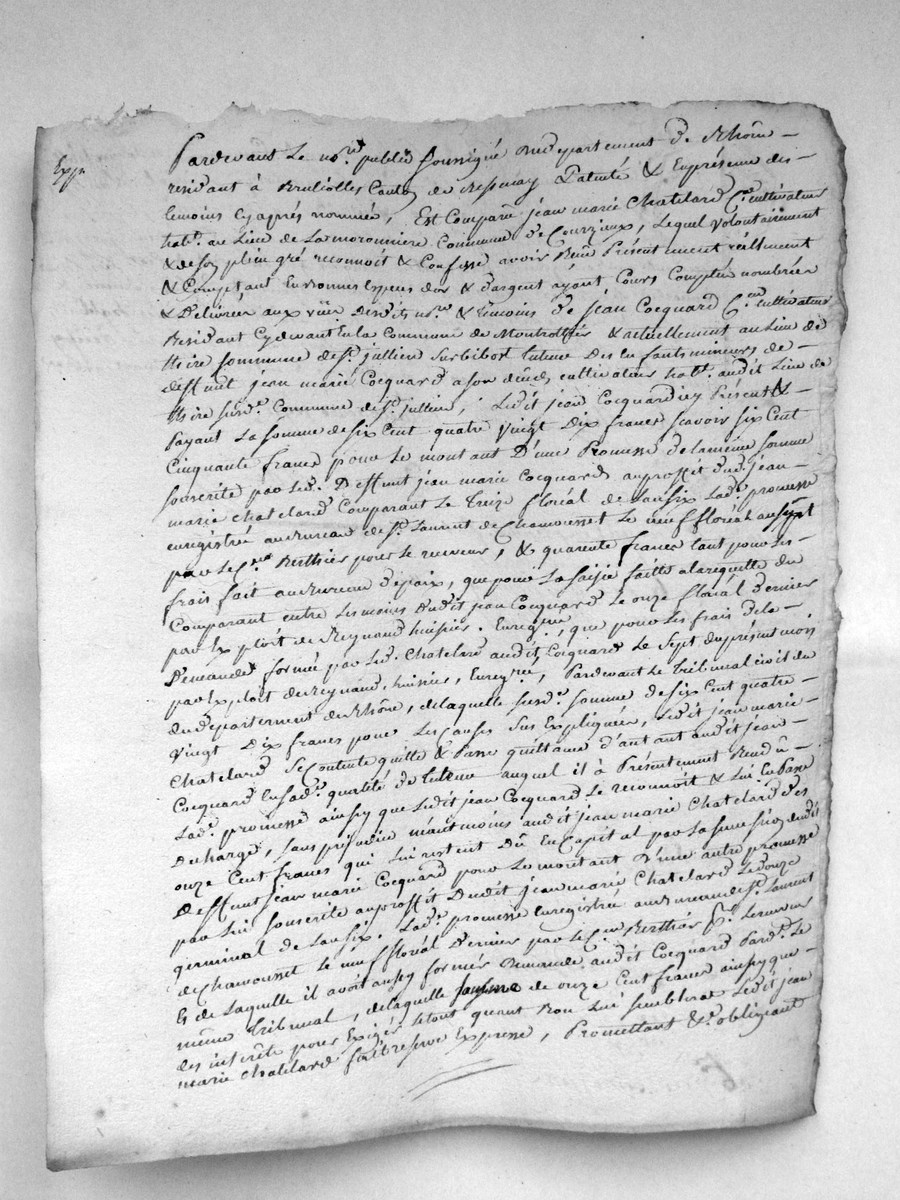 Expn
Pardevant Le nore public soussigné Du departement du Rhône
residant à Brulliolles Canton de Bessenay Patenté & En présence des
temoins cy aprés nommés, Est Comparu jean marie Chatelard Cen cultivateur
habt. au Lieu de La moronniere Commune de Courzieux, Lequel volontairement
& de son plein gré reconnoit & Confesse avoir Reçu Présentement réellement
& Comptant En bonnes Espèces d'or & d'argent ayant Cours Comptée nombrée
& Delivrée aux vüe Desdits nore & temoins de jean Cocquard Cen cultivateur
Residant Cydevant En la Commune de Montrottier & actuellement au Lieu de
commune de St. jullien sur bibost tuteur Des Enfants mineurs de
deffunt jean marié Cocquard a son décès cultivateur habt. audit Lieu de
susdt. Commune de St. jullien, Ledit jean Cocquard icy Présent &
Payant La somme de six Cent quatre vingt Dix francs scavoir six Cent
Cinquante francs pour Le montant D'une Promesse de la même somme
souscrite par Led. Deffunt jean marie Cocquard au proffit dud. jean
marie Chatelard Comparant Le treize floréal de L'an six Lade. promesse
enregistré au Bureau de St. Laurent de Chamousset Le neuf floréal an sept
par Le Cen Berthier pour Le receveur, & quarente francs tant pour Les
frais fait au Bureau de paix, que pour La saisie faitte a la requette du
Comparant entre Les mains dudit jean Cocquard Le onze floréal dernier
par Exploit de Reynaud huissier. Enregtré, que pour Les frais de la
Demande formée par Led. Chatelard audit Cocquard Le sept du présent mois
par Exploit de reynaud, huissier, Enregtré, Pardevant Le Tribunal civil du
du departement du Rhône, de laquelle susde. somme de six Cent quatre
vingt Dix francs pour Les Causes sus Expliquées, Ledit jean marie
Chatelard se Contente quitte & Passe quittance d'autant audit jean
Cocquard En sade. qualité de tuteur auquel il à Présentement Rendû
Lade. promesse ainsy que Ledit jean Cocquard Le reconnoit & Lui En Passe
decharge, sans préjudice néantmoins audit jean marie Chatelard des
onze Cent francs qui Lui restent Dû En Capital par La succession dudit
deffunt jean marie Cocquard pour Le montant D'une autre promesse
par Lui souscrite au proffit Dudit jean marie Chatelard Le douze
germinal de L'an six. Lade. promesse enregistrée au Bureau de St. Laurent
de Chamousset Le neuf floréal Dernier par Le Cen Berthier pr. Le receveur
Et de Laquelle il avoit aussy formés Demande audit Cocquard Pardt. Le
même Tribunal, de laquelle somme de onze Cent francs ainsy que
des interêts pour Exiger Le tout quant Bon Lui semblera Ledit jean
marie Chatelard fait reserve Expresse, Promettant &c. obligeant